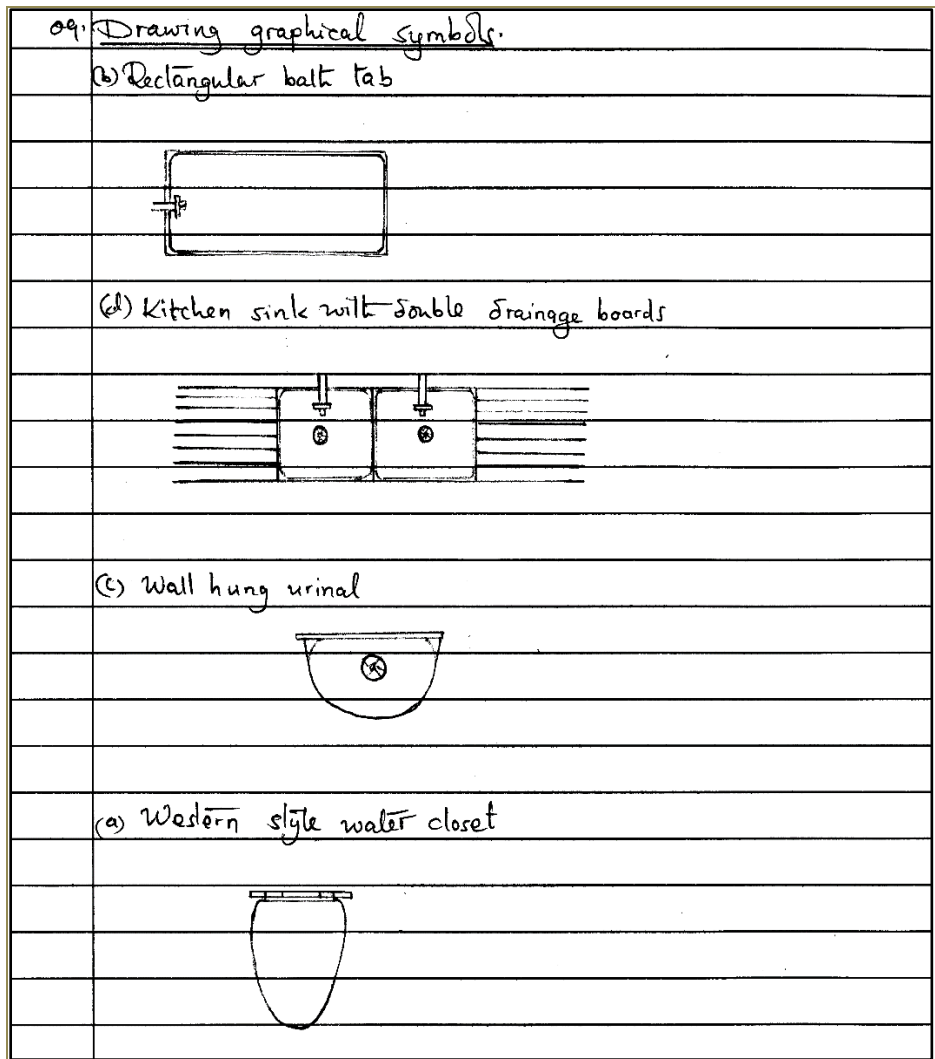 09. Drawing graphical symbols.
(b) Rectangular bath tab
(d) Kitchen sink with double drainage boards
(c) Wall hung urinal
(a) Western style water closet